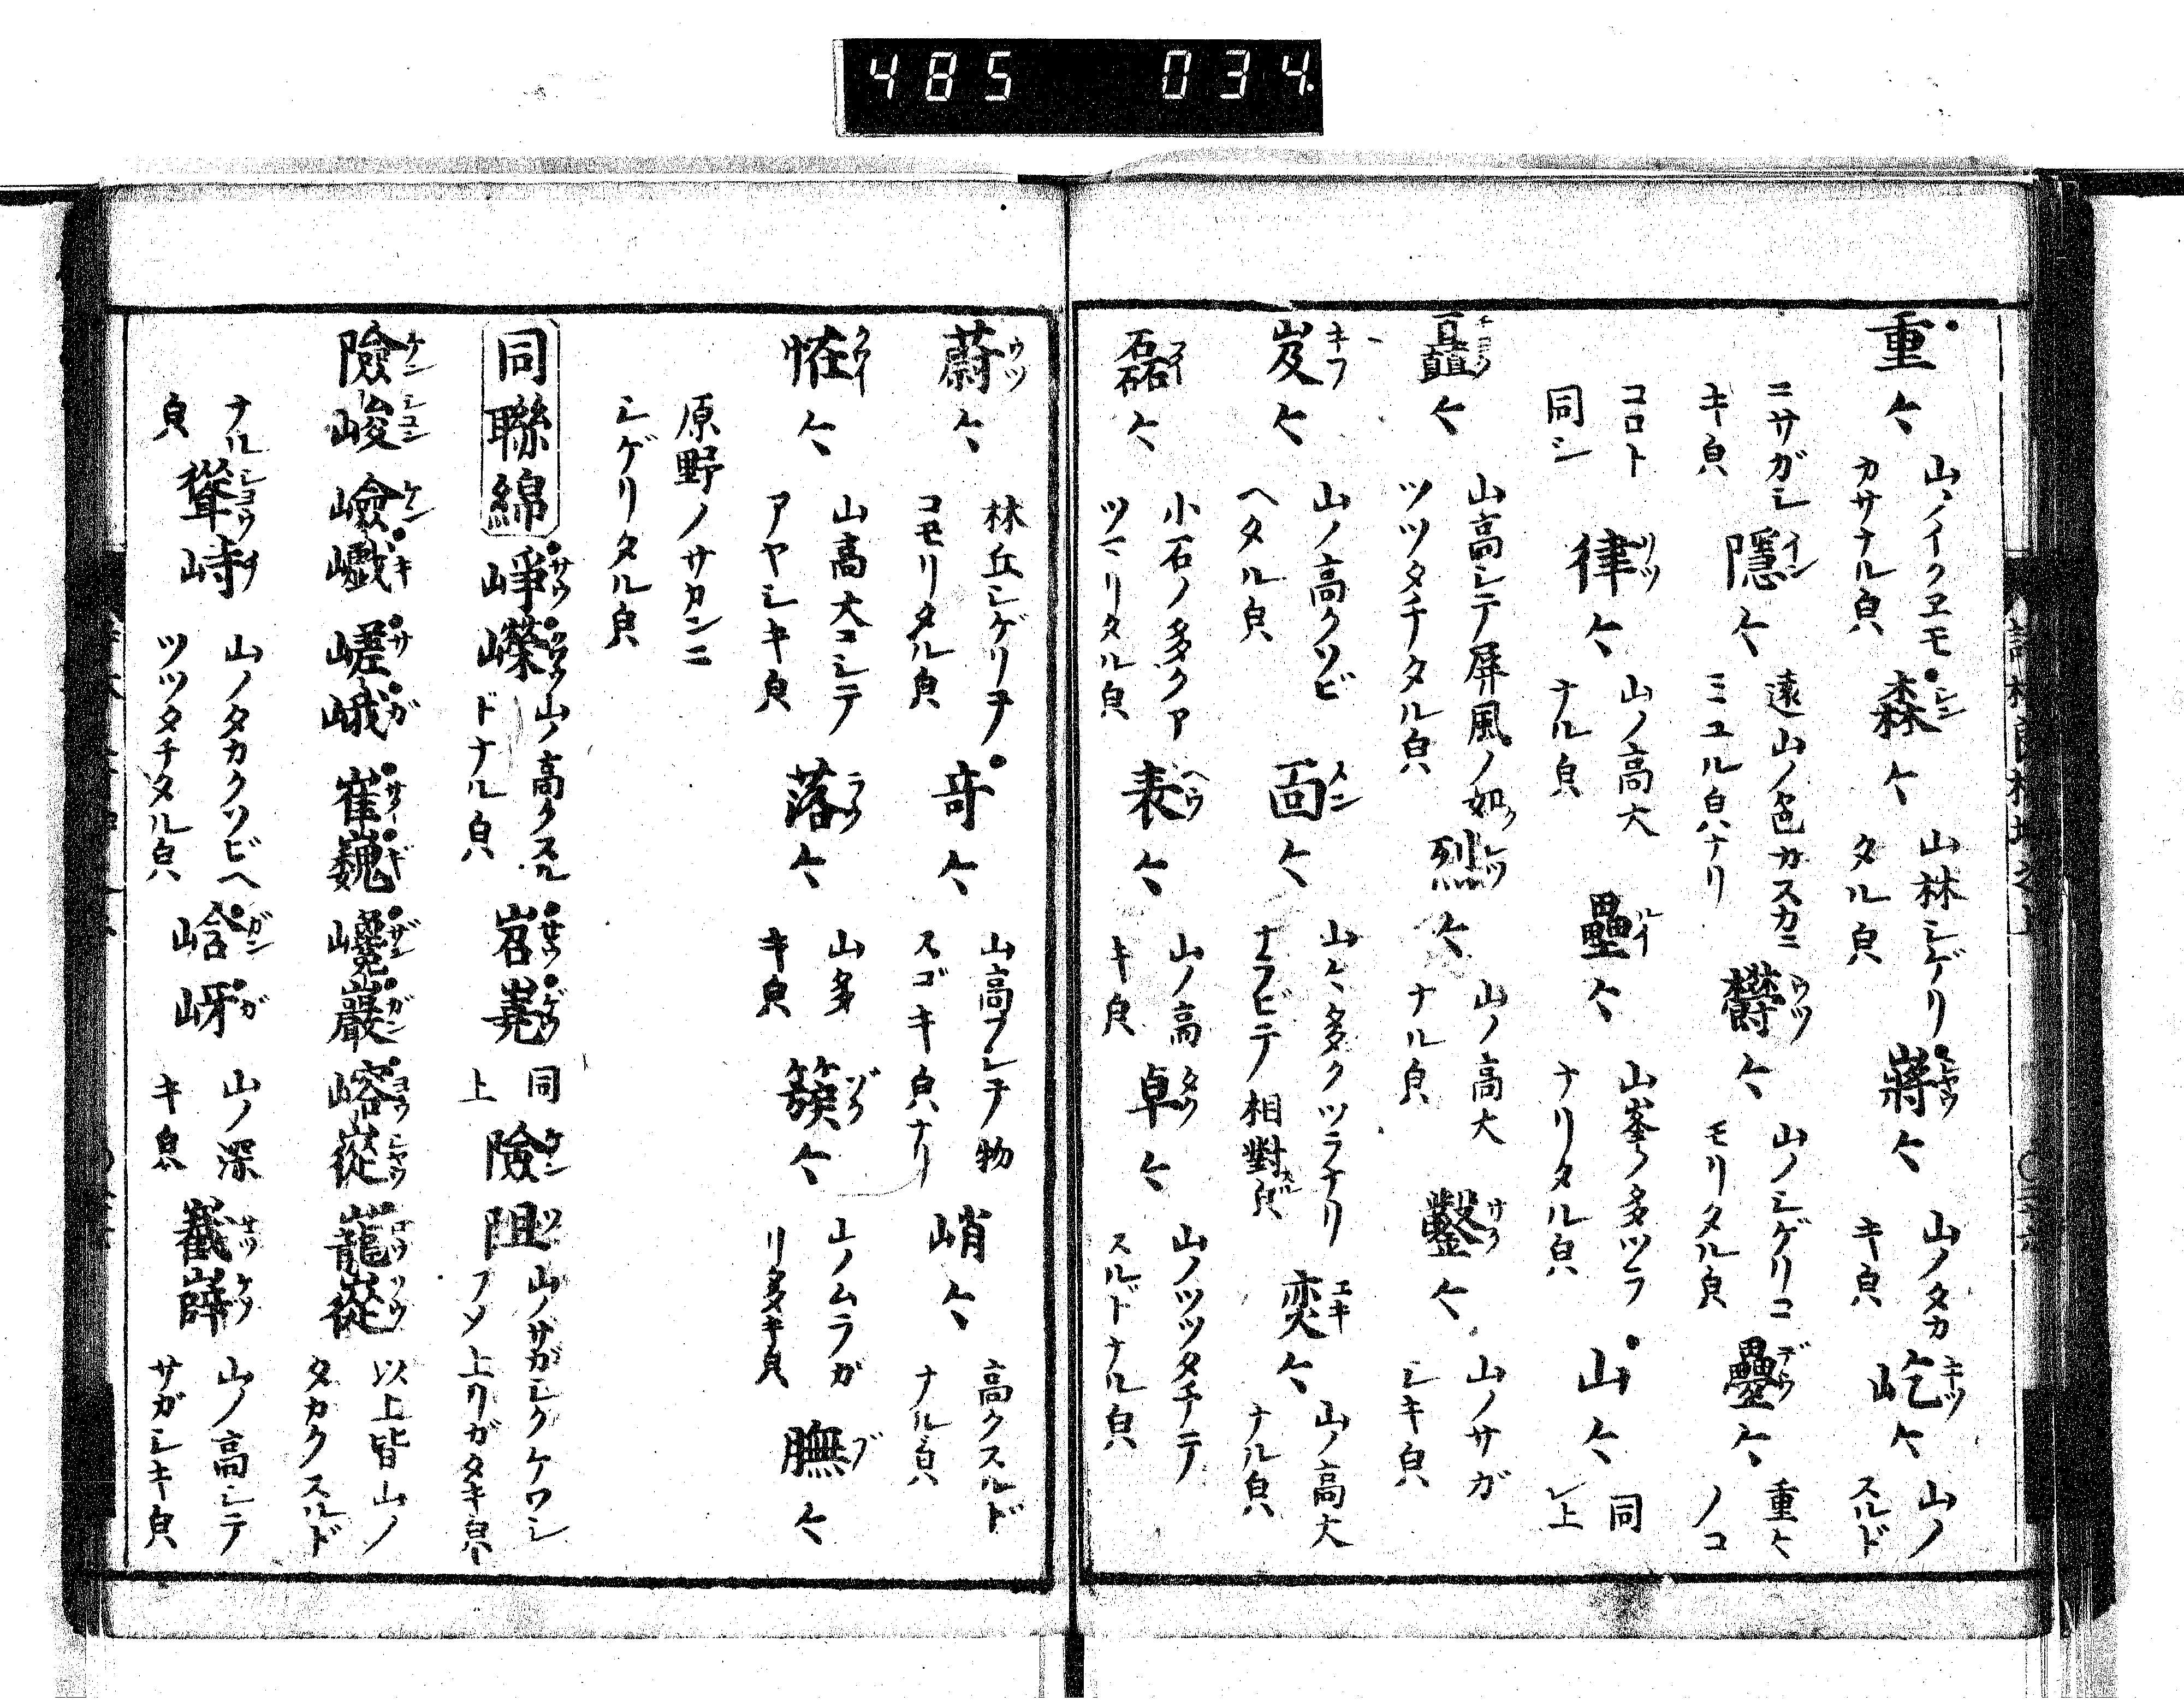 485 034
重々 山ノイクヱモカサナル皃 森々 山林シゲリタル皃 蔣々 山ノタカキ皃 屹々 山ノスルド
ニサガシキ皃 隱々 遠山ノ色カスカニミユル皃ナリ 欝々 山ノシゲリコモリタル皃 疊々 重々ノコ
コロト同シ 律々 山ノ高大ナル皃 壘々 山峯ノ多ツラナリタル皃 山々 同上
矗々 山高シテ屏風ノ如ツツタチタル皃 烈々 山ノ高大ナル皃 鑿々 山ノサガシキ皃
岌々 山ノ高クソビヘタル皃 面々 山々多クツラナリナラビテ相對スル皃 奕々 山ノ高大ナル皃
磊々 小石ノ多クアツマリタル皃 表々 山ノ高キ皃 卓々 山ノツツタチテスルドナル皃
蔚々 林丘シゲリヲコモリタル皃 奇々 山高フシテ物スゴキ皃ナリ 峭々 高クスルドナル皃
恠々 山高大コシテアヤシキ皃 落々 山多キ皃 簇々 山ノムラガリ多キ皃 膴々
原野ノサカンニシゲリタル皃
同聯綿 崢嶸 山ノ高クスルドナル皃 岧嶤 同上 險阻 山ノサガシクケワシフソ上リガタキ皃
險峻 嶮巇 嵯峨 崔巍 巉巖 嵱嵷 巃嵷 以上皆山ノタカクスルド
ナル皃 聳峙 山ノタカクソビヘツツタチタル皃 峆岈 山ノ深キ皃 嶻嶭 山ノ高シテサガシキ皃